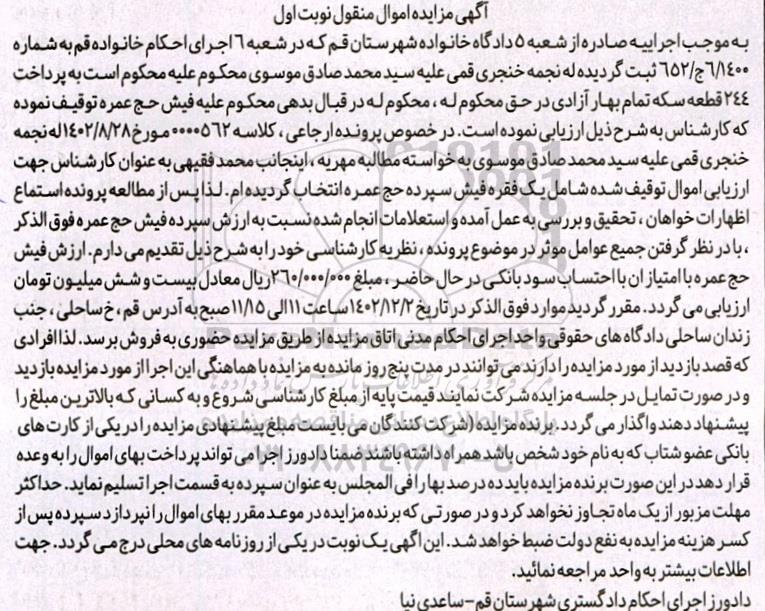 آگهی مزایده اموال منقول نوبت اول
به موجب اجراییه صادره از شعبه ۵ دادگاه خانواده شهرستان قم که در شعبه ۶ اجرای احکام خانواده قم به شماره
۶/۱۴۰۰ج/۶۵۲ ثبت گردیده له نجمه خنجری قمی علیه سید محمد صادق موسوی محکوم علیه محکوم است به پرداخت
۲۴۴ قطعه سکه تمام بهار آزادی در حق محکوم له ، محکوم له در قبال بدهی محکوم علیه فیش حج عمره توقیف نموده
که کارشناس به شرح ذیل ارزیابی نموده است. در خصوص پرونده ارجاعی ، کلاسه ۰۰۰۰۵۶۲ مورخ ۱۴۰۲/۸/۲۸ له نجمه
خنجری قمی علیه سید محمد صادق موسوی به خواسته مطالبه مهریه ، اینجانب محمد فقیهی به عنوان کارشناس جهت
ارزیابی اموال توقیف شده شامل یک فقره فیش سپرده حج عمره انتخاب گردیده ام. لذا پس از مطالعه پرونده استماع
اظهارات خواهان ، تحقیق و بررسی به عمل آمده و استعلامات انجام شده نسبت به ارزش سپرده فیش حج عمره فوق الذکر
، با در نظر گرفتن جمیع عوامل موثر در موضوع پرونده ، نظریه کارشناسی خود را به شرح ذیل تقدیم می دارم. ارزش فیش
حج عمره با امتیاز ان با احتساب سود بانکی در حال حاضر ، مبلغ ۲۶۰/۰۰۰/۰۰۰ ریال معادل بیست و شش میلیون تومان
ارزیابی می گردد. مقرر گردید موارد فوق الذکر در تاریخ ۱۴۰۲/۱۲/۲ ساعت ۱۱ الی ۱۱/۱۵ صبح به آدرس قم ، خ ساحلی ، جنب
زندان ساحلی دادگاه های حقوقی واحد اجرای احکام مدنی اتاق مزایده از طریق مزایده حضوری به فروش برسد. لذا افرادی
که قصد بازدید از مورد مزایده را دارند می توانند در مدت پنج روز مانده به مزایده با هماهنگی این اجرا از مورد مزایده بازدید
و در صورت تمایل در جلسه مزایده شرکت نمایند قیمت پایه از مبلغ کارشناسی شروع و به کسانی که بالاترین مبلغ را
پیشنهاد دهند واگذار می گردد. برنده مزایده (شرکت کنندگان می بایست مبلغ پیشنهادی مزایده را در یکی از کارت های
بانکی عضو شتاب که به نام خود شخص باشد همراه داشته باشند ضمنا دادورز اجرا می تواند پرداخت بهای اموال را به وعده
قرار دهد در این صورت برنده مزایده باید ده درصد بها را فی المجلس به عنوان سپرده به قسمت اجرا تسلیم نماید. حداکثر
مهلت مزبور از یک ماه تجاوز نخواهد کرد و در صورتی که برنده مزایده در موعد مقرر بهای اموال را نپردازد سپرده پس از
کسر هزینه مزایده به نفع دولت ضبط خواهد شد. این اگهی یک نوبت در یکی از روزنامه های محلی درج می گردد. جهت
اطلاعات بیشتر به واحد مراجعه نمائید.
دادورز اجرای احکام دادگستری شهرستان قم-ساعدی نیا